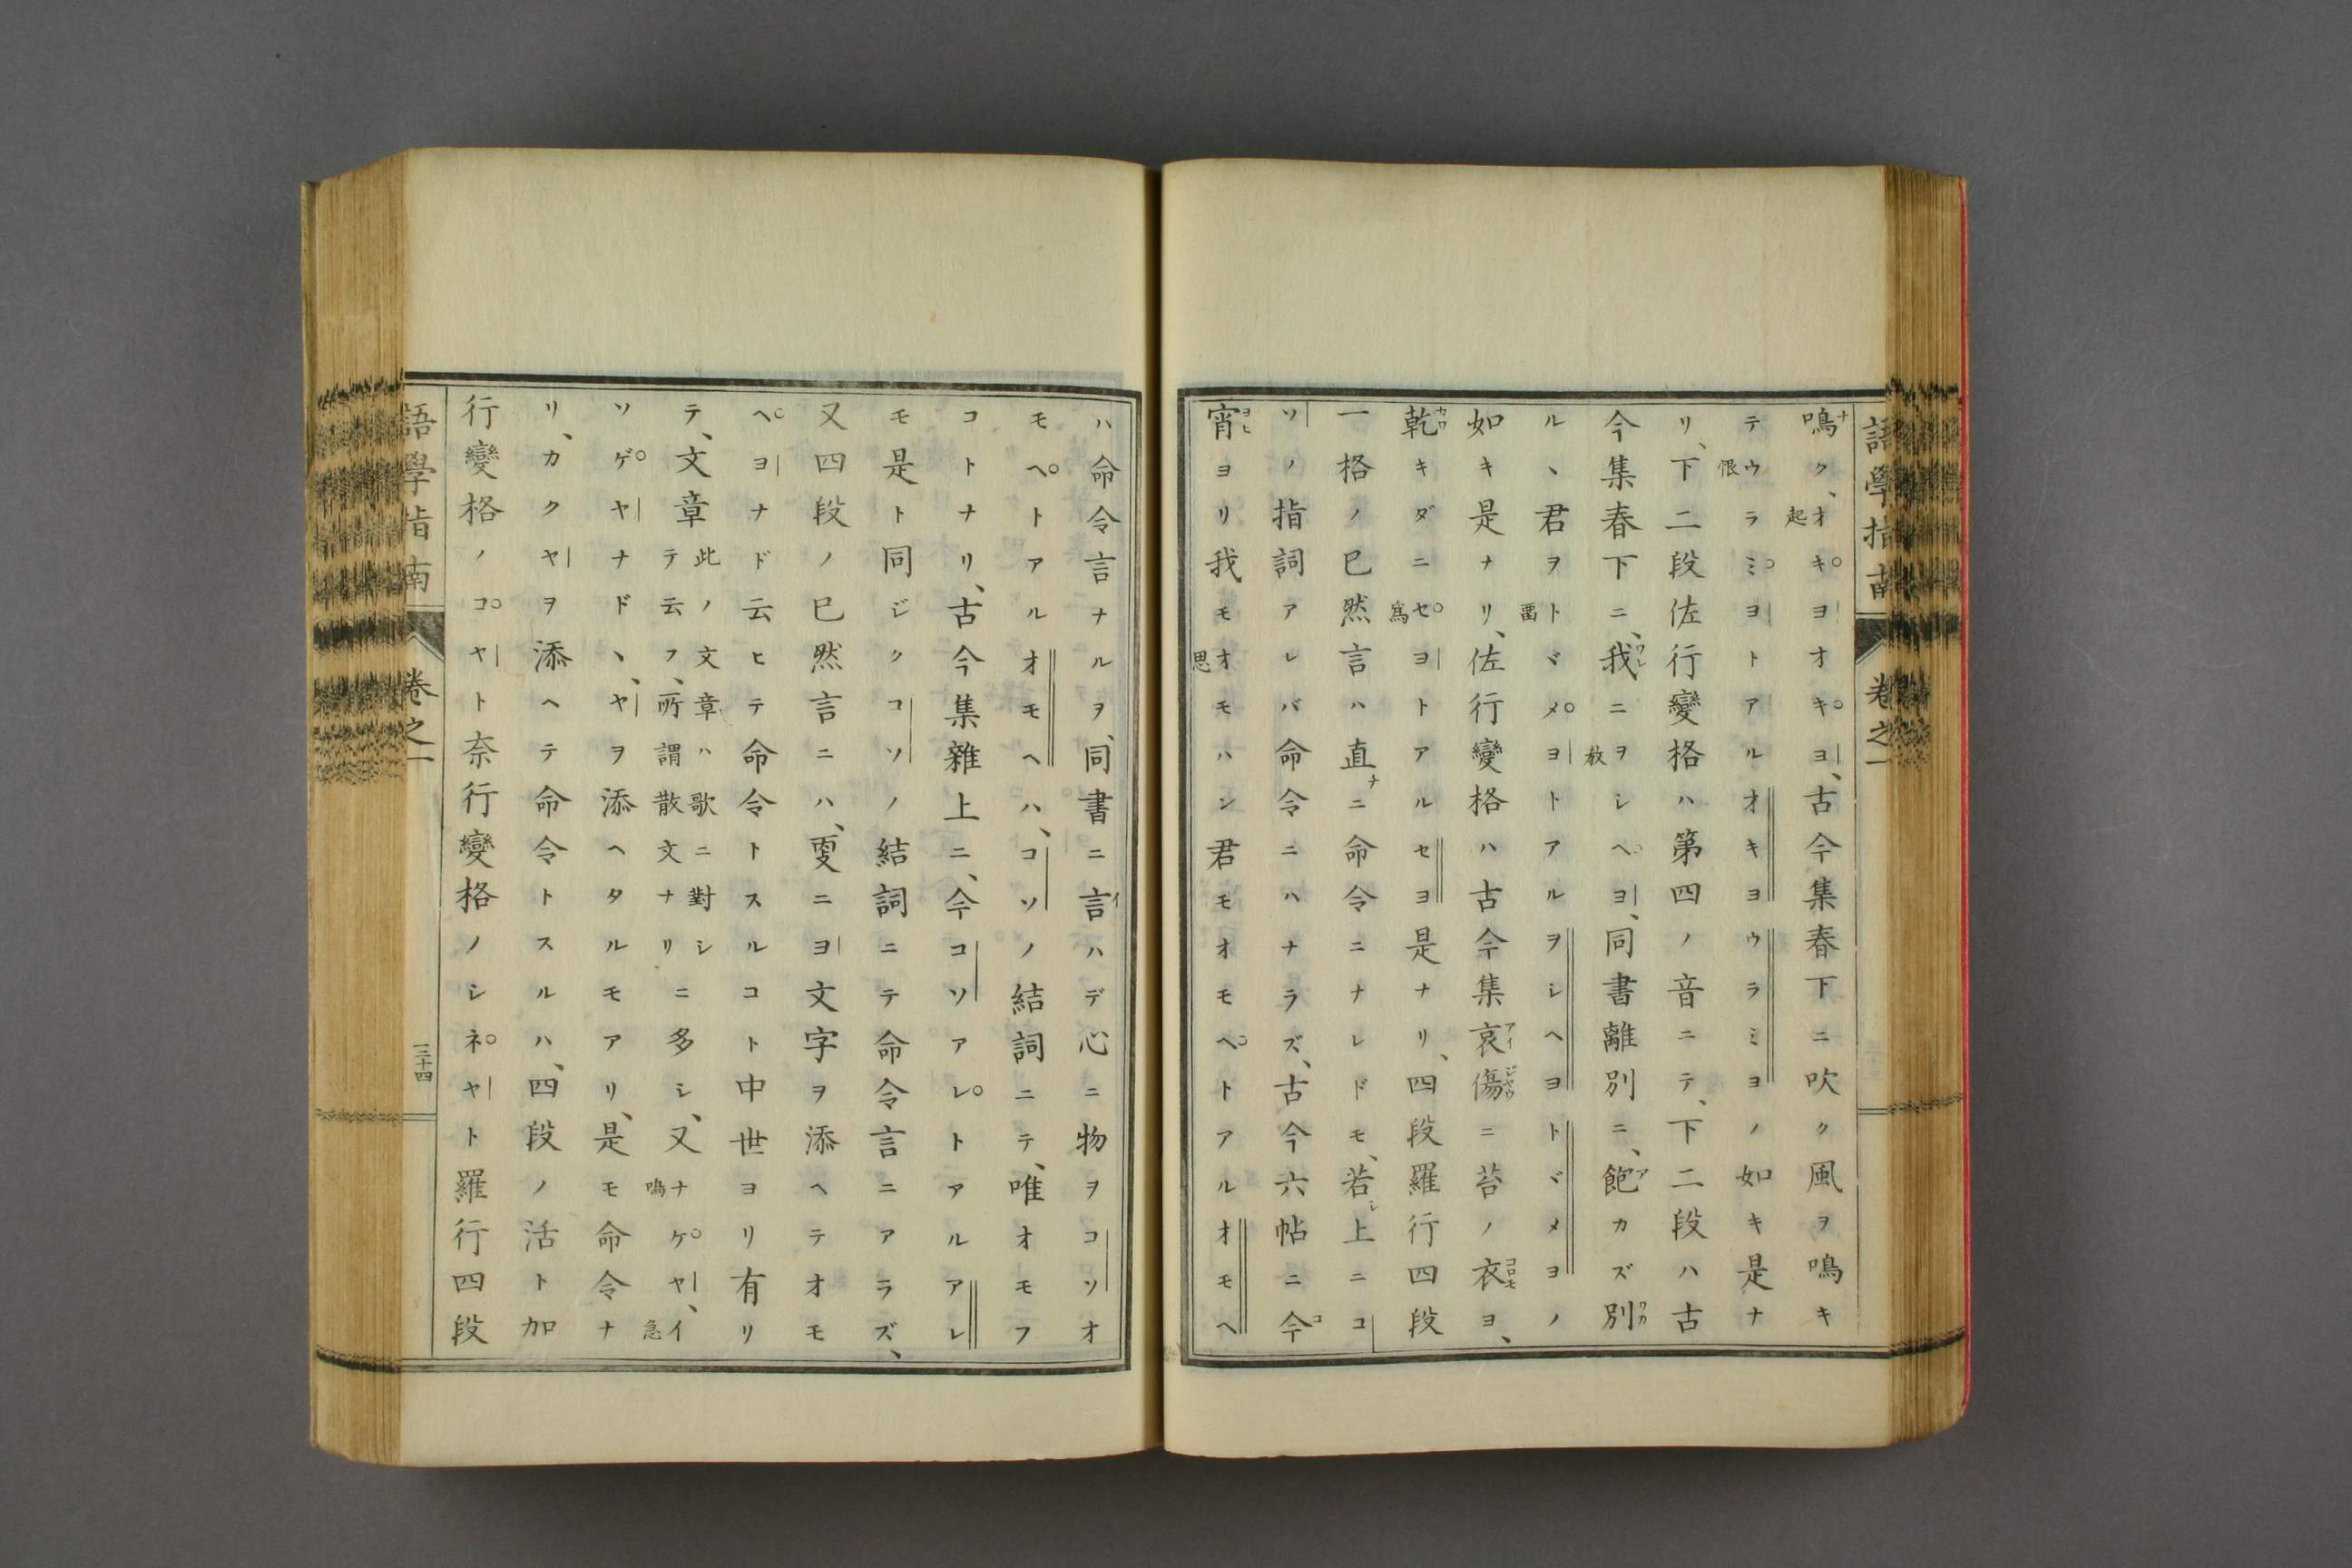 語學指南
卷之一
鳴ク、オキヨオキヨ、古今集春下ニ吹ク風ヲ鳴キ
テウラミヨトアルオキヨウラミヨノ如キ是ナ
リ、下二段佐行變格ハ第四ノ音ニテ、下二段ハ古
今集春下ニ、我ニヲシヘヨ、同書離別ニ、飽カズ別
ルヽ君ヲトヾメヨトアルヲシヘヨトヾメヨノ
如キ是ナリ、佐行變格ハ古今集哀傷ニ苔ノ衣ヨ、
乾キダニセヨトアルセヨ是ナリ、四段羅行四段
一格ノ已然言ハ直ニ命令ニナレドモ、若上ニコ
ソノ指詞アレバ命令ニハナラズ、古今六帖ニ今
宵ヨリ我モオモハン君モオモヘトアルオモヘ
ハ命令言ナルヲ、同書ニ言ハデ心ニ物ヲコソオ
モヘトアルオモヘハ、コソノ結詞ニテ、唯オモフ
コトナリ、古今集雜上ニ、今コソアレトアルアレ
モ是ト同ジクコソノ結詞ニテ命令言ニアラズ、
又四段ノ已然言ニハ、更ニヨ文字ヲ添ヘテオモ
ヘヨナド云ヒテ命令トスルコト中世ヨリ有リ
テ、文章此ノ文章ハ歌ニ對シテ云フ、所謂散文ナリニ多シ、又ナケヤ、イ
ソゲヤナドヽ、ヤヲ添ヘタルモアリ、是モ命令ナ
リ、カクヤヲ添ヘテ命令トスルハ、四段ノ活ト加
行變格ノコヤト奈行變格ノシネヤト羅行四段
語學指南
卷之一
三十四